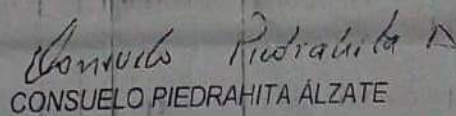 Consuelo Piedrahita A
CONSUELO PIEDRAHITA ÁLZATE